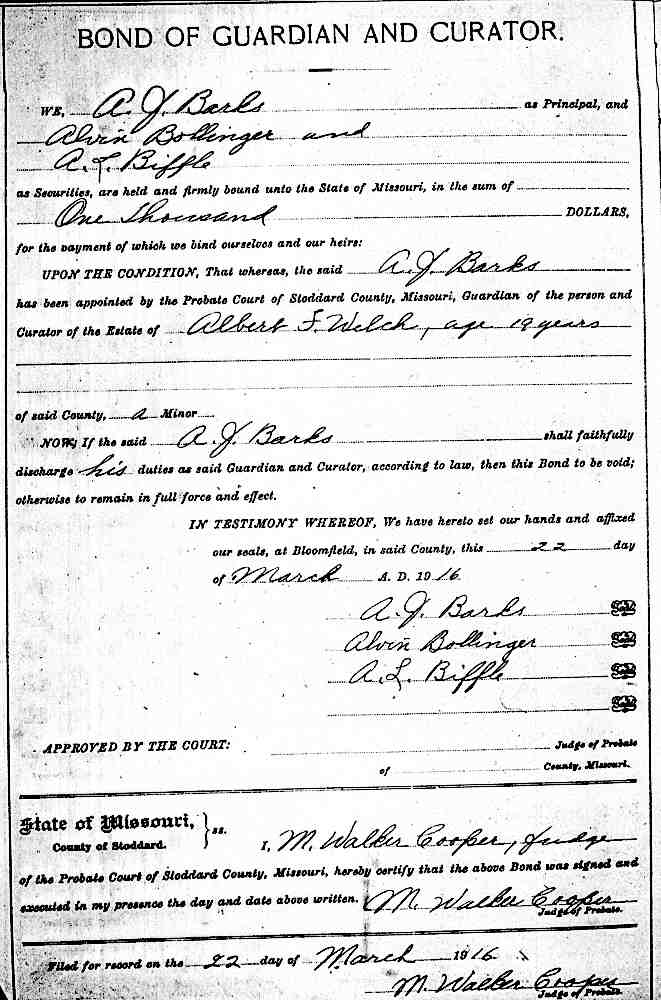 BOND OF GUARDIAN AND CURATOR.
WE, A. J. Barks as Principal, and
Alvin Bollinger and
A. L. Biffle
as Securities, are held and firmly bound unto the State of Missouri, in the sum of
One thousand DOLLARS,
for the payment of which we bind ourselves and our heirs:
UPON THE CONDITION, That whereas, the said A. J. Barks
has been appointed by the Probate Court of Stoddard County, Missouri, Guardian of the person and
Curator of the Estate of Albert F. Welch, age 19 years
of said County, a Minor
NOW, If the said A. J. Barks shall faithfully
discharge his duties as said Guardian and Curator, according to law, then this Bond to be void;
otherwise to remain in full force and effect.
IN TESTIMONY WHEREOF, We have hereto set our hands and affixed
our seals, at Bloomfield, in said County, this 22 day
of March A. D. 1916.
A. J. Barks Seal
Alvin Bollinger Seal
A. L. Biffle Seal
Seal
APPROVED BY THE COURT: Judge of Probate
of County, Missouri.
State of Missouri, } ss.
County of Stoddard.
I, M. Walker Cooper, Judge
of the Probate Court of Stoddard County, Missouri, hereby certify that the above Bond was signed and
executed in my presence the day and date above written. M. Walker Cooper
Judge of Probate.
Filed for record on the 22 day of March 1916
M. Walker Cooper
Judge of Probate.